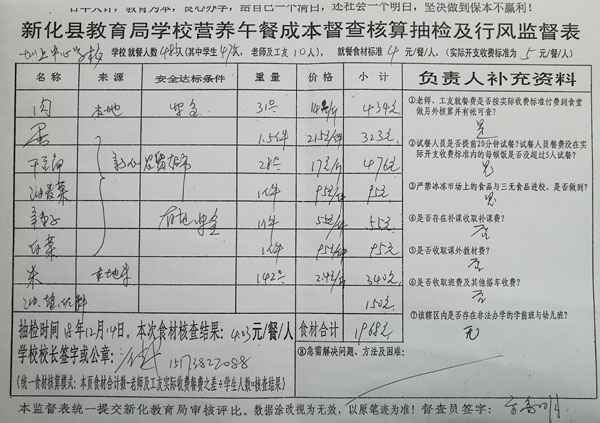 百年大计,教育为本,良心办学,给自己一个清白,还社会一个明白,坚决做到保本不赢利!
新化县教育局学校营养午餐成本督查核算抽检及行风监督表
中心学校 学校就餐人数48人(其中学生47人,老师及工友10人), 就餐食材标准4元/餐/人,(实际开支收费标准为5元/餐/人)
名称 来源 安全达标条件 重量 价格 小计 负责人补充资料
肉 本地 安全 31斤 14元/斤 434元
1.5件 215元/件 323元
新化 超市 28斤 17元/斤 476元
油麦菜 1件 95元/件 95元
有 安全 1件 55元/件 55元
白菜 1件 95元/件 95元
米 本地米 142斤 2.4元/斤 340元
油、盐、佐料 150元
抽检时间18年12月14日。本次食材核查结果:4.03元/餐/人 食材合计 1968元
学校校长签字或公章: 15173822088
(统一食材核算模式:本页食材合计数-老师及工友实际收费餐费之差÷学生人数=核查结果)
①老师、工友就餐费是否按实际收费标准付费到食堂做另外核算并有帐可查?
是
②试餐人员是否提前20分钟试餐?试餐人员餐费没在实际开支收费标准内的每顿饭是否没超过5人试餐?
是
③严禁冰冻市场上的食品与三无食品进校,是否做到?
是
④是否存在补课收取补课费?
否
⑤是否收取课外教材费?
否
⑥是否收取班费及其他搭车收费?
否
⑦该辖区内是否存在非法办学的学前班与幼儿班?
无
⑧急需解决问题、方法及困难:
本监督表统一提交新化教育局审核评比。数据涂改视为无效,以原笔迹为准!督查员签字: